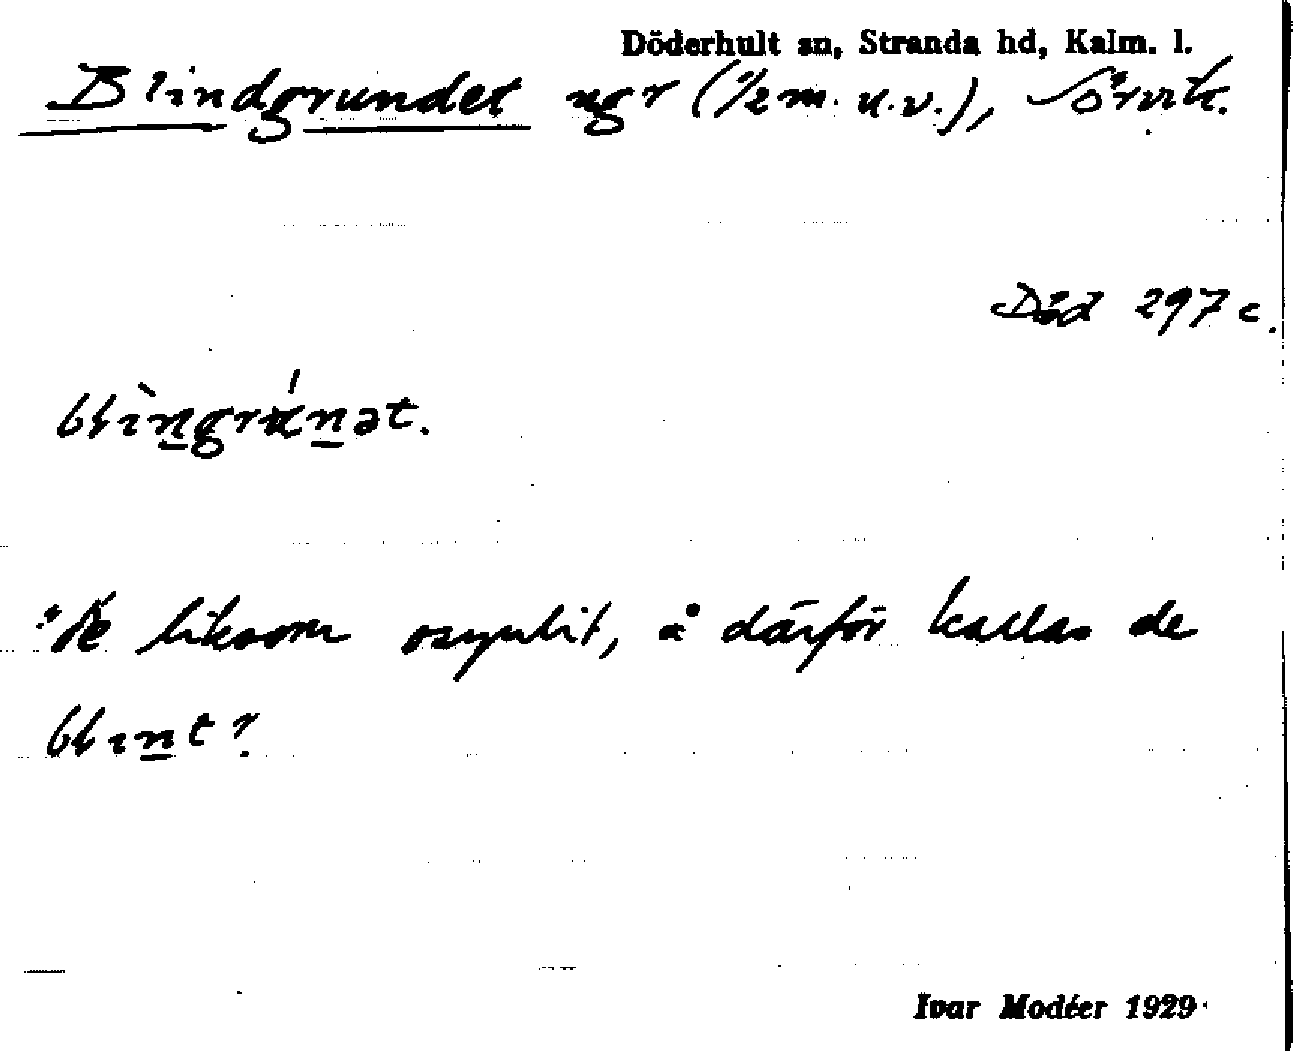 Döderhult sn, Stranda hd, Kalm. l.
Blindgrundet ugr (1/2 m. u.v.), Sörvik.
Död 297 c.
blìngrúnət.
"De liksom osynlit, å därför kallas de
blint".
Ivar Modéer 1929